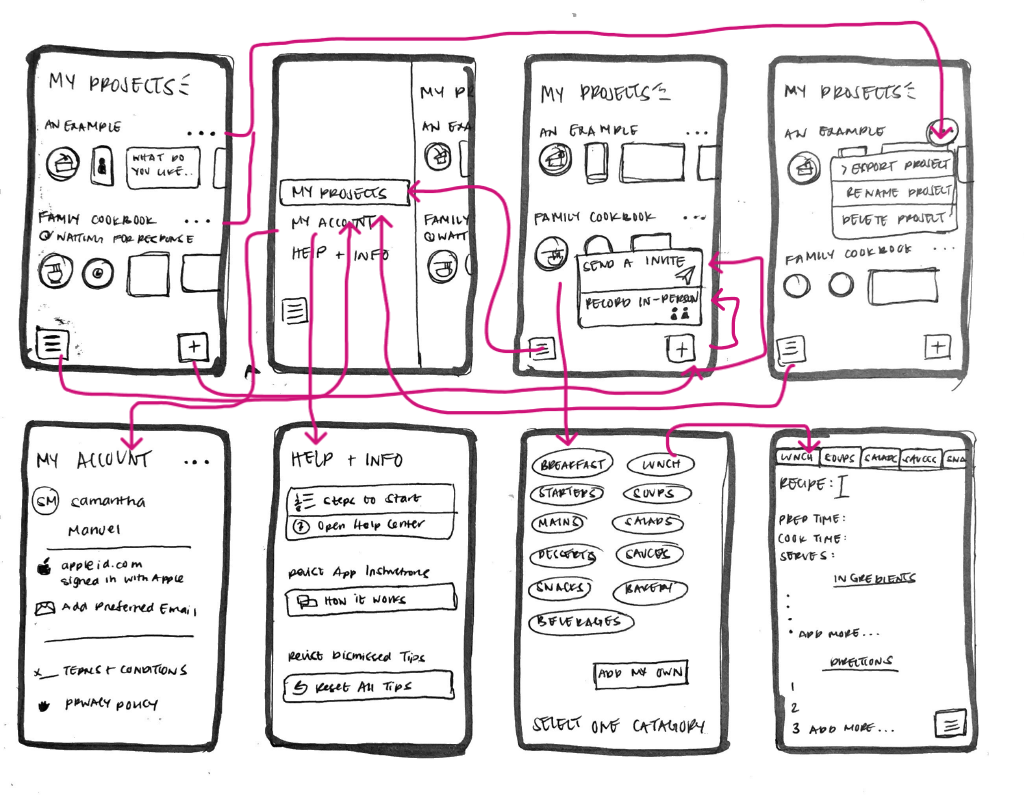 MY PROJECTS
AN EXAMPLE
...
WHAT DO
YOU LIKE..
FAMILY COOKBOOK
...
WAITING FOR RESPONSE
+
MY PR
AN EXA
MY PROJECTS
MY ACCOUNT
HELP + INFO
FAMILY
WAIT
MY PROJECTS
AN EXAMPLE
...
FAMILY COOKBOOK
...
SEND A INVITE
RECORD IN-PERSON
+
MY PROJECTS
AN EXAMPLE
> EXPORT PROJECT
RENAME PROJECT
DELETE PROJECT
FAMILY COOKBOOK
...
+
MY ACCOUNT
...
SM
Samantha
Manuel
appleid.com
signed in with Apple
Add Preferred Email
x_ TERMS + CONDITIONS
PRIVACY POLICY
HELP + INFO
Steps to Start
? Open Help Center
Revisit App Instructions
How it works
Revisit Dismissed Tips
Reset All Tips
BREAKFAST
LUNCH
STARTERS
SOUPS
MAINS
SALADS
DESSERTS
SAUCES
SNACKS
BAKERY
BEVERAGES
ADD MY OWN
SELECT ONE CATAGORY
LUNCH SOUPS SALADS SAUCES SNA
RECIPE:
PREP TIME:
COOK TIME:
SERVES:
INGREDIENTS
• ADD MORE...
DIRECTIONS
1
2
3 ADD MORE...